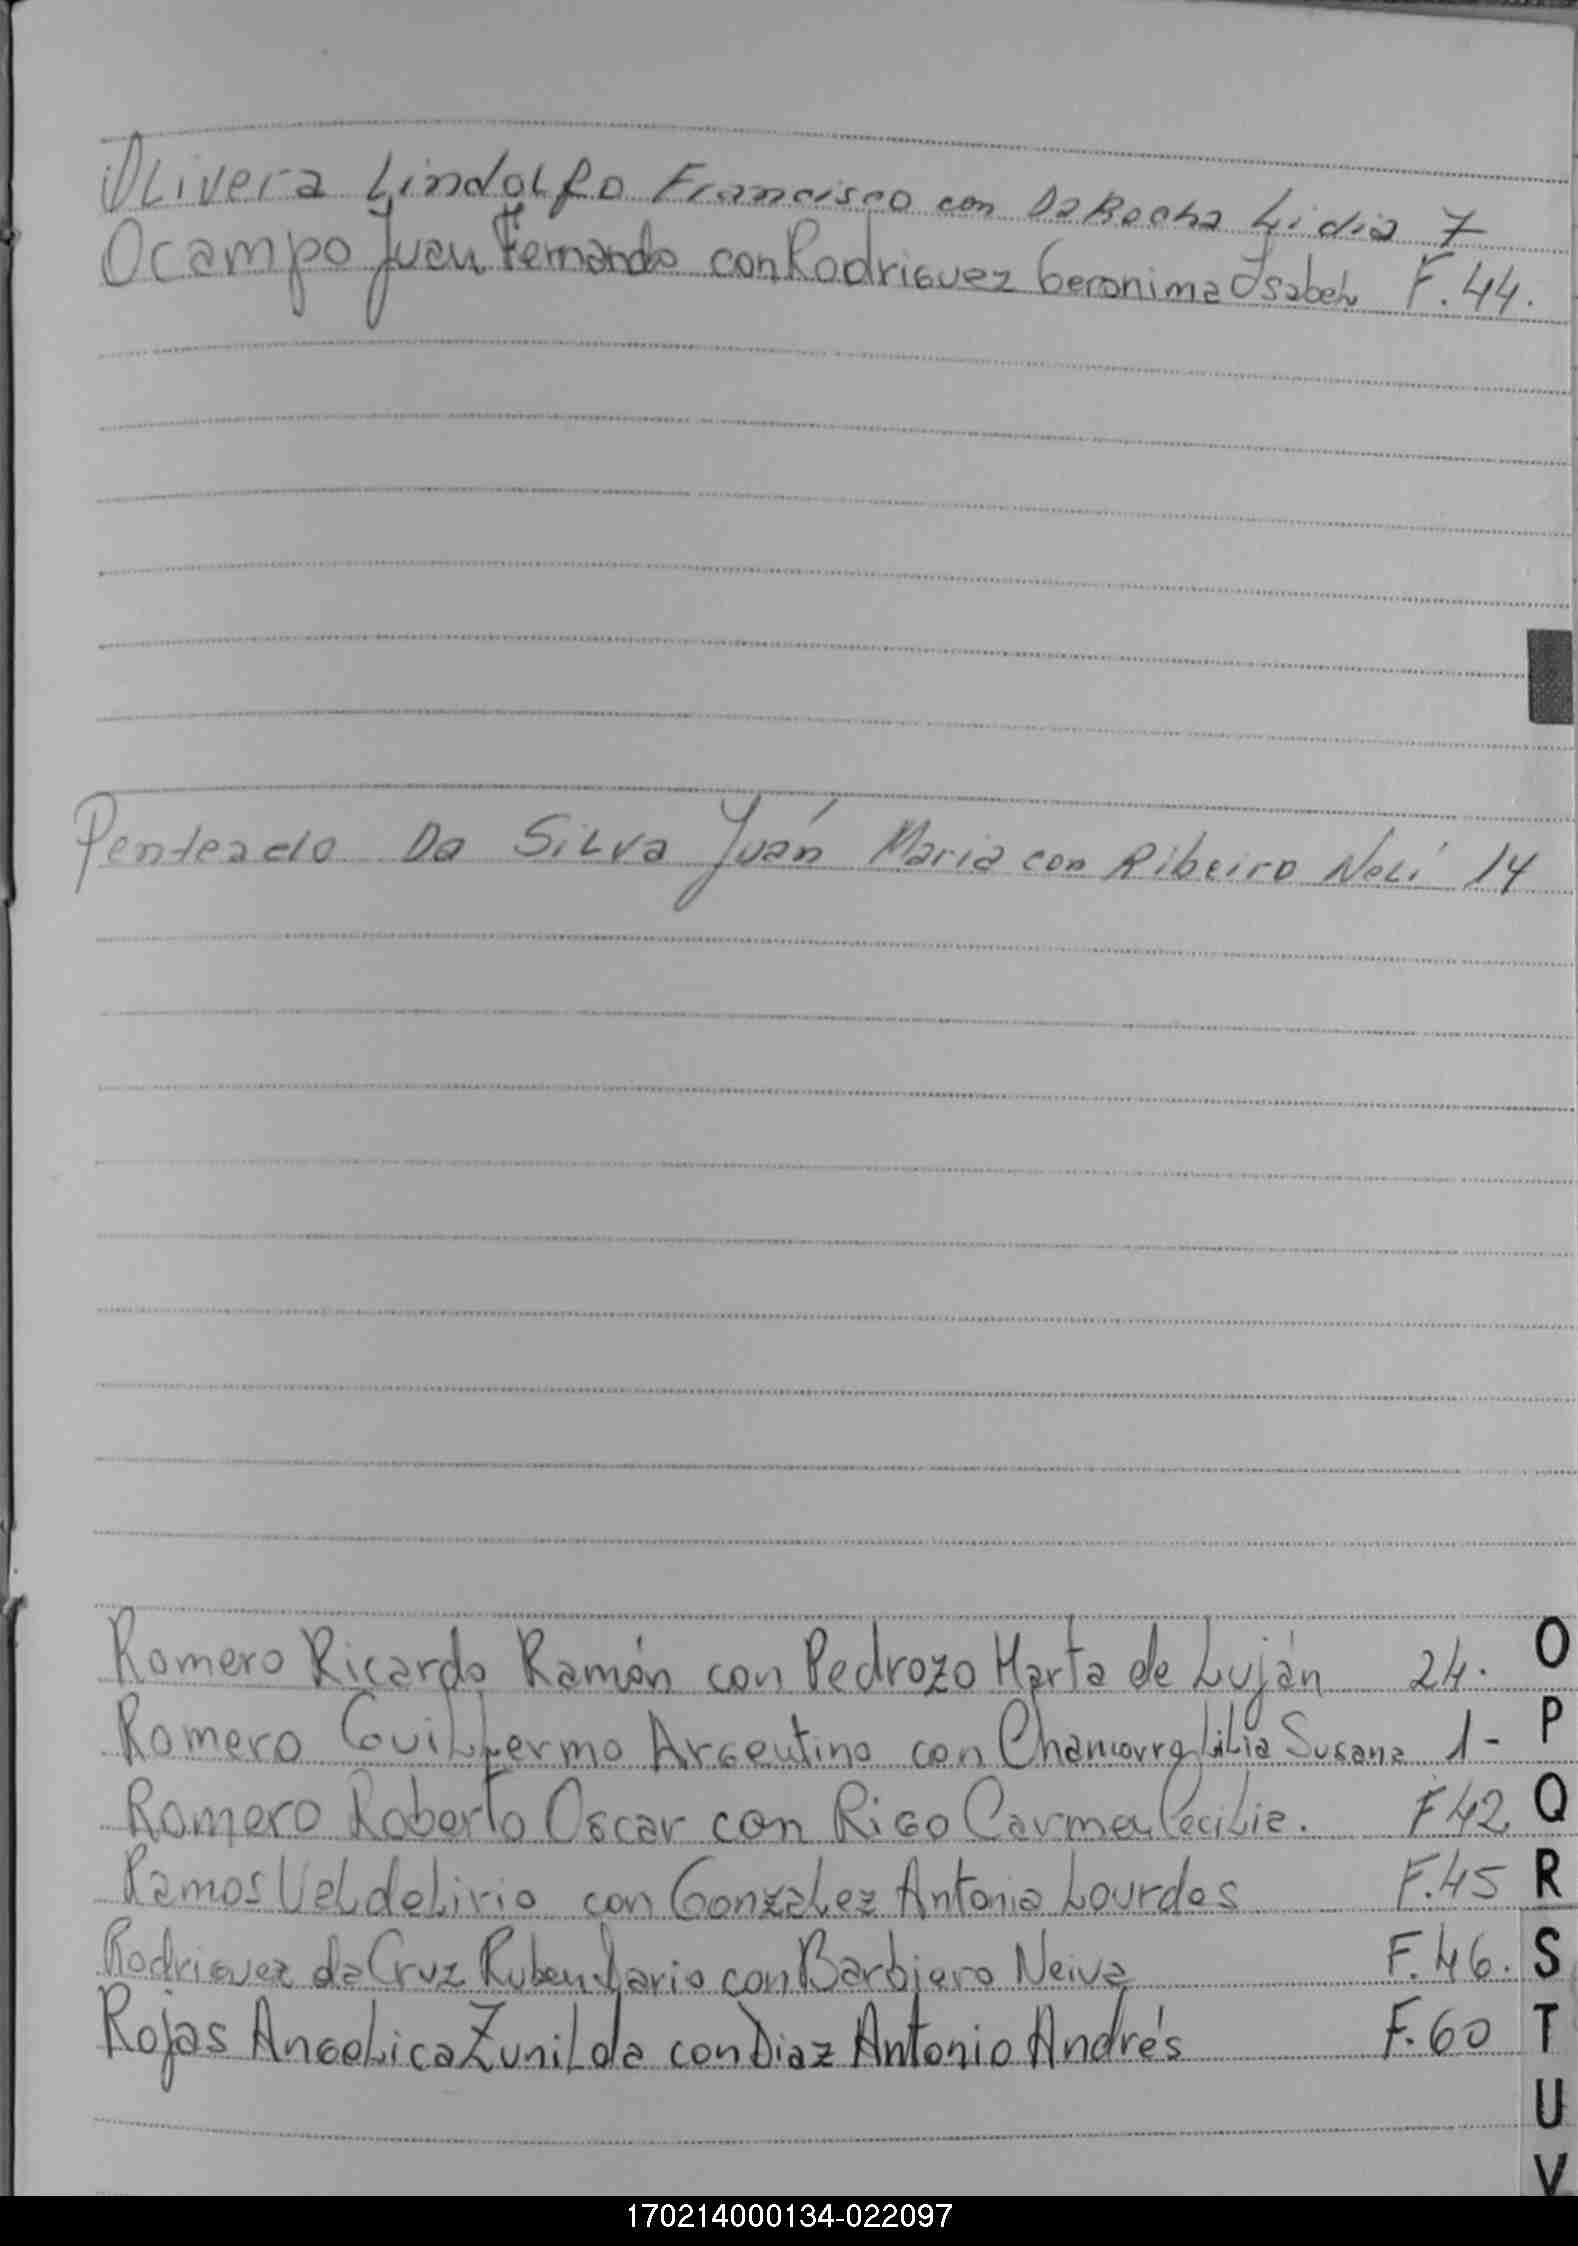 Olivera Lindolfo Francisco con Da Rocha Lidia 7
Ocampo Juan Fernando con Rodriguez Geronima Isabel F.44.
Penteado Da Silva Juán Maria con Ribeiro Neli 14
Romero Ricardo Ramón con Pedrozo Marta de Luján 24.
Romero Guillermo Argentino con Chamorro Lilia Susana 1-
Romero Roberto Oscar con Rigo Carmen Cecilia. F 42
Ramos Veldelirio con Gonzalez Antonia Lourdes F.45
Rodriguez da Cruz Ruben Dario con Barbiero Neiva F.46.
Rojas Angelica Zunilda con Diaz Antonio Andrés F.60
O
P
Q
R
S
T
U
V
170214000134-022097